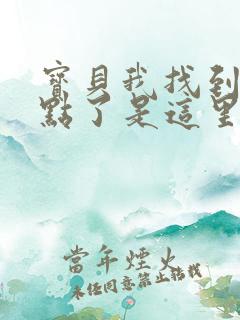 寶貝我找到
點了是這里
當年煙火
未經同意禁止轉載